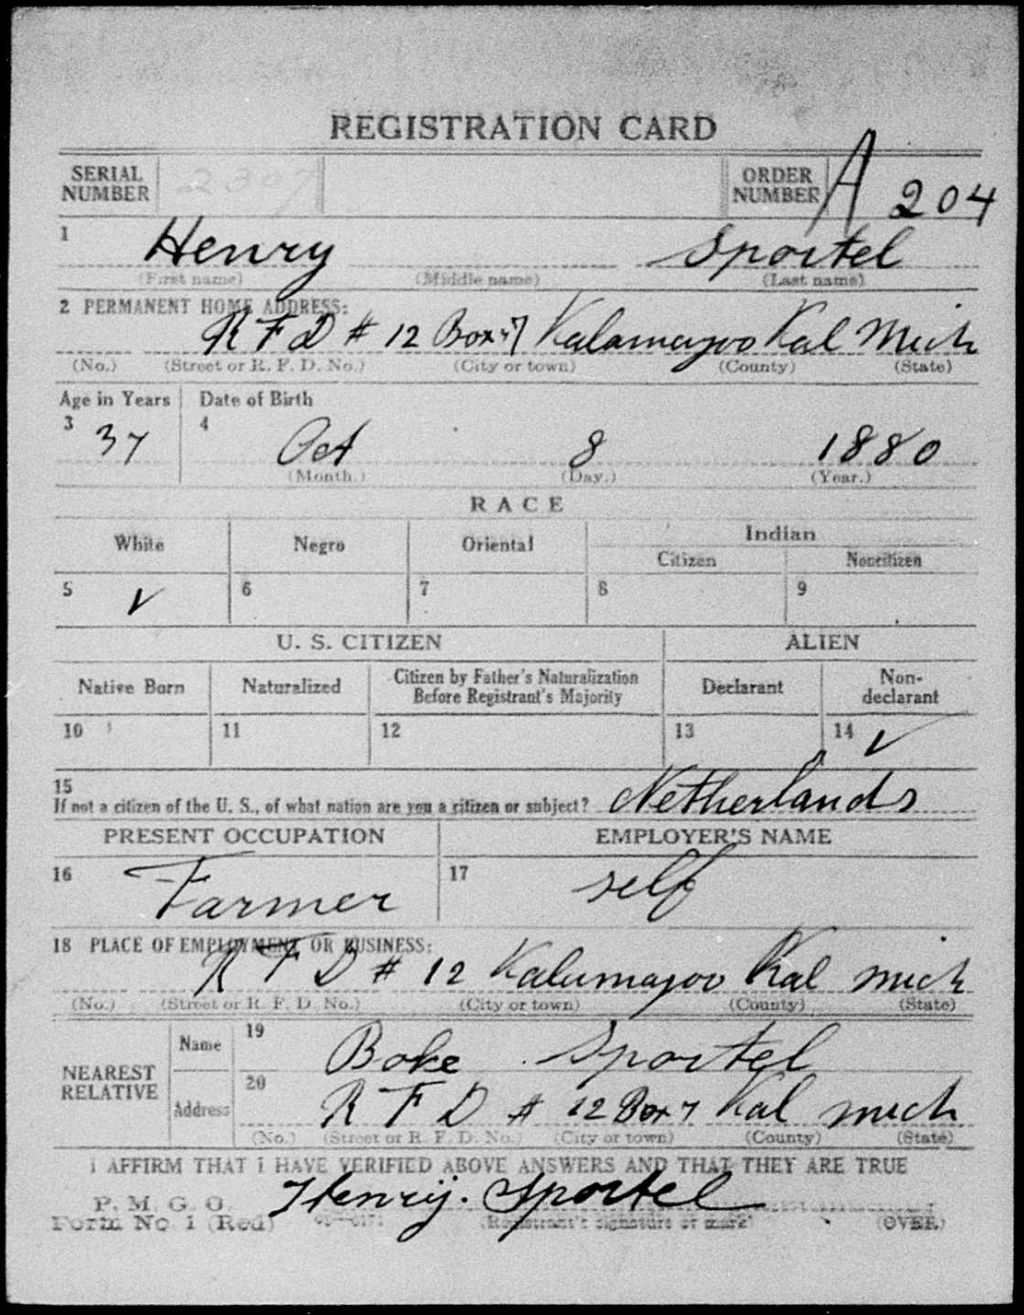 REGISTRATION CARD
SERIAL NUMBER 2307 ORDER NUMBER A 204
1 Henry Sportel
(First name) (Middle name) (Last name)
2 PERMANENT HOME ADDRESS:
R F D # 12 Box 7 Kalamazoo Kal Mich
(No.) (Street or R. F. D. No.) (City or town) (County) (State)
Age in Years Date of Birth
3 37 4 Oct 8 1880
(Month.) (Day.) (Year.)
RACE
White Negro Oriental Indian
Citizen Noncitizen
5 ✓ 6 7 8 9
U. S. CITIZEN ALIEN
Native Born Naturalized Citizen by Father's Naturalization Before Registrant's Majority Declarant Non-declarant
10 11 12 13 14 ✓
15
If not a citizen of the U. S., of what nation are you a citizen or subject? Netherlands
PRESENT OCCUPATION EMPLOYER'S NAME
16 Farmer 17 self
18 PLACE OF EMPLOYMENT OR BUSINESS:
R F D # 12 Kalamazoo Kal Mich
(No.) (Street or R. F. D. No.) (City or town) (County) (State)
NEAREST RELATIVE
Name 19 Boke Sportel
Address 20 R F D # 12 Box 7 Kal Mich
(No.) (Street or R. F. D. No.) (City or town) (County) (State)
I AFFIRM THAT I HAVE VERIFIED ABOVE ANSWERS AND THAT THEY ARE TRUE
P. M. G. O.
Form No. 1 (Red) Henrij. Sportel
(Registrant's signature or mark) (OVER)